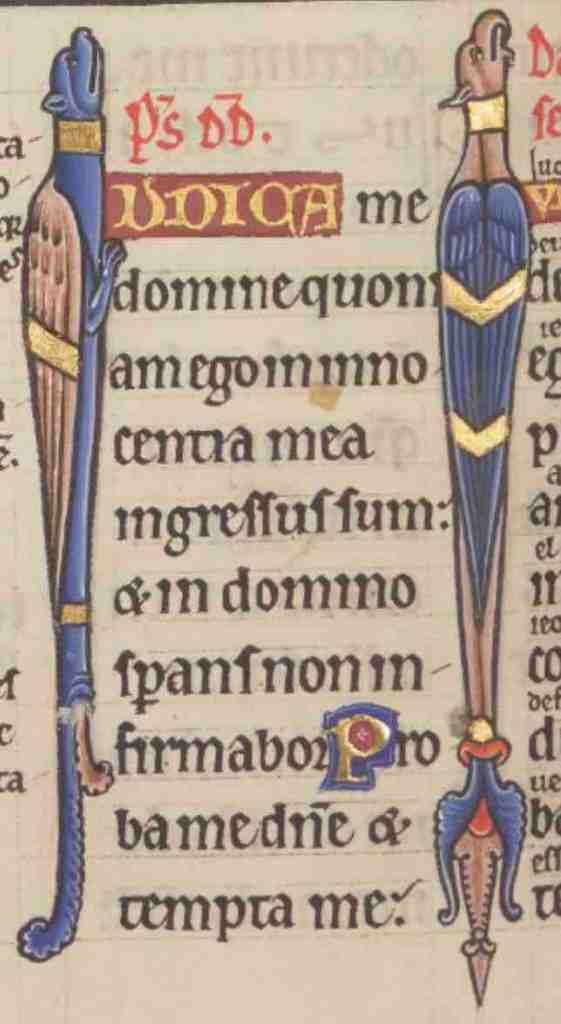 P̄s d̄d.
IUDICA me
domine quoni
am ego in inno
centia mea
ingreſſuſ ſum:
& in domino
ſꝑanſ non in
firmabor Pro
ba me dn̄e &
tempta me: